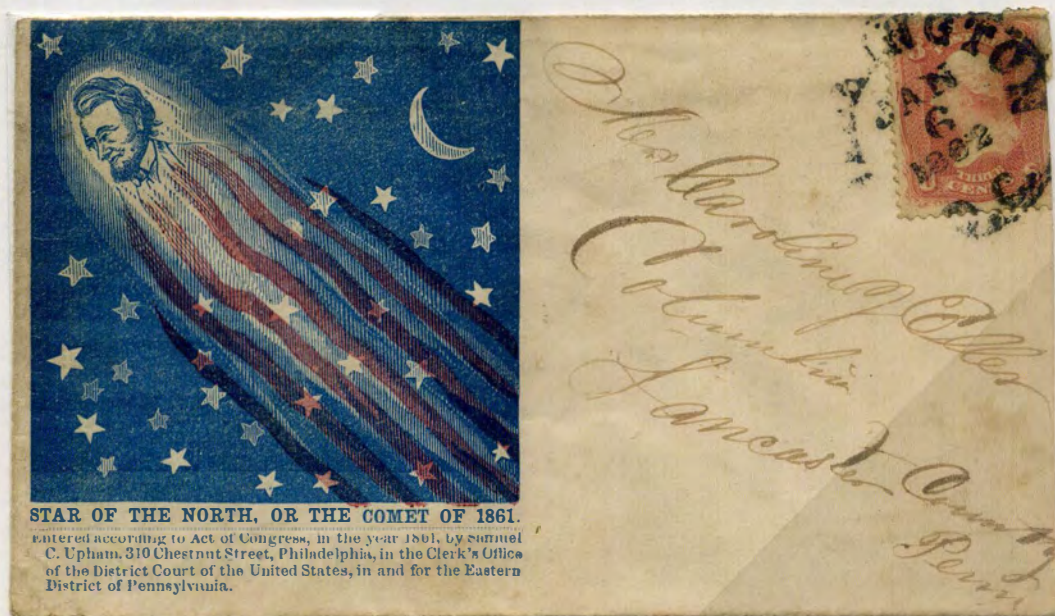 STAR OF THE NORTH, OR THE COMET OF 1861.
Entered according to Act of Congress, in the year 1861, by Samuel
C. Upham, 310 Chestnut Street, Philadelphia, in the Clerk's Office
of the District Court of the United States, in and for the Eastern
District of Pennsylvania.
INGTON
JAN
6
1862
THREE
CENTS
Columbia
Lancaster County
Penn